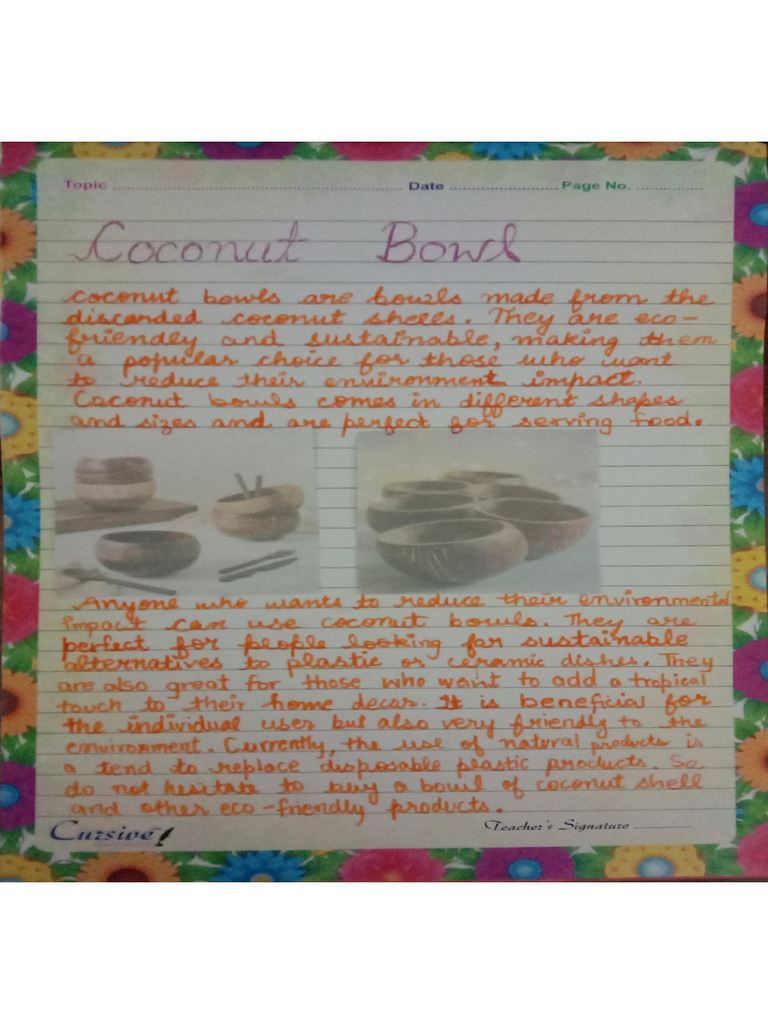 Topic ........................ Date ........................ Page No. ................
Coconut Bowl
coconut bowls are bowls made from the
discarded coconut shells. They are eco-
friendly and sustainable, making them
a popular choice for those who want
to reduce their environment impact.
Coconut bowls comes in different shapes
and sizes and are perfect for serving food.
Anyone who wants to reduce their environmental
impact can use coconut bowls. They are
perfect for people looking for sustainable
alternatives to plastic or ceramic dishes. They
are also great for those who want to add a tropical
touch to their home decor. It is beneficial for
the individual user but also very friendly to the
environment. Currently, the use of natural products is
a tend to replace disposable plastic products. So
do not hesitate to buy a bowl of coconut shell
and other eco-friendly products.
Cursive Teacher's Signature ................